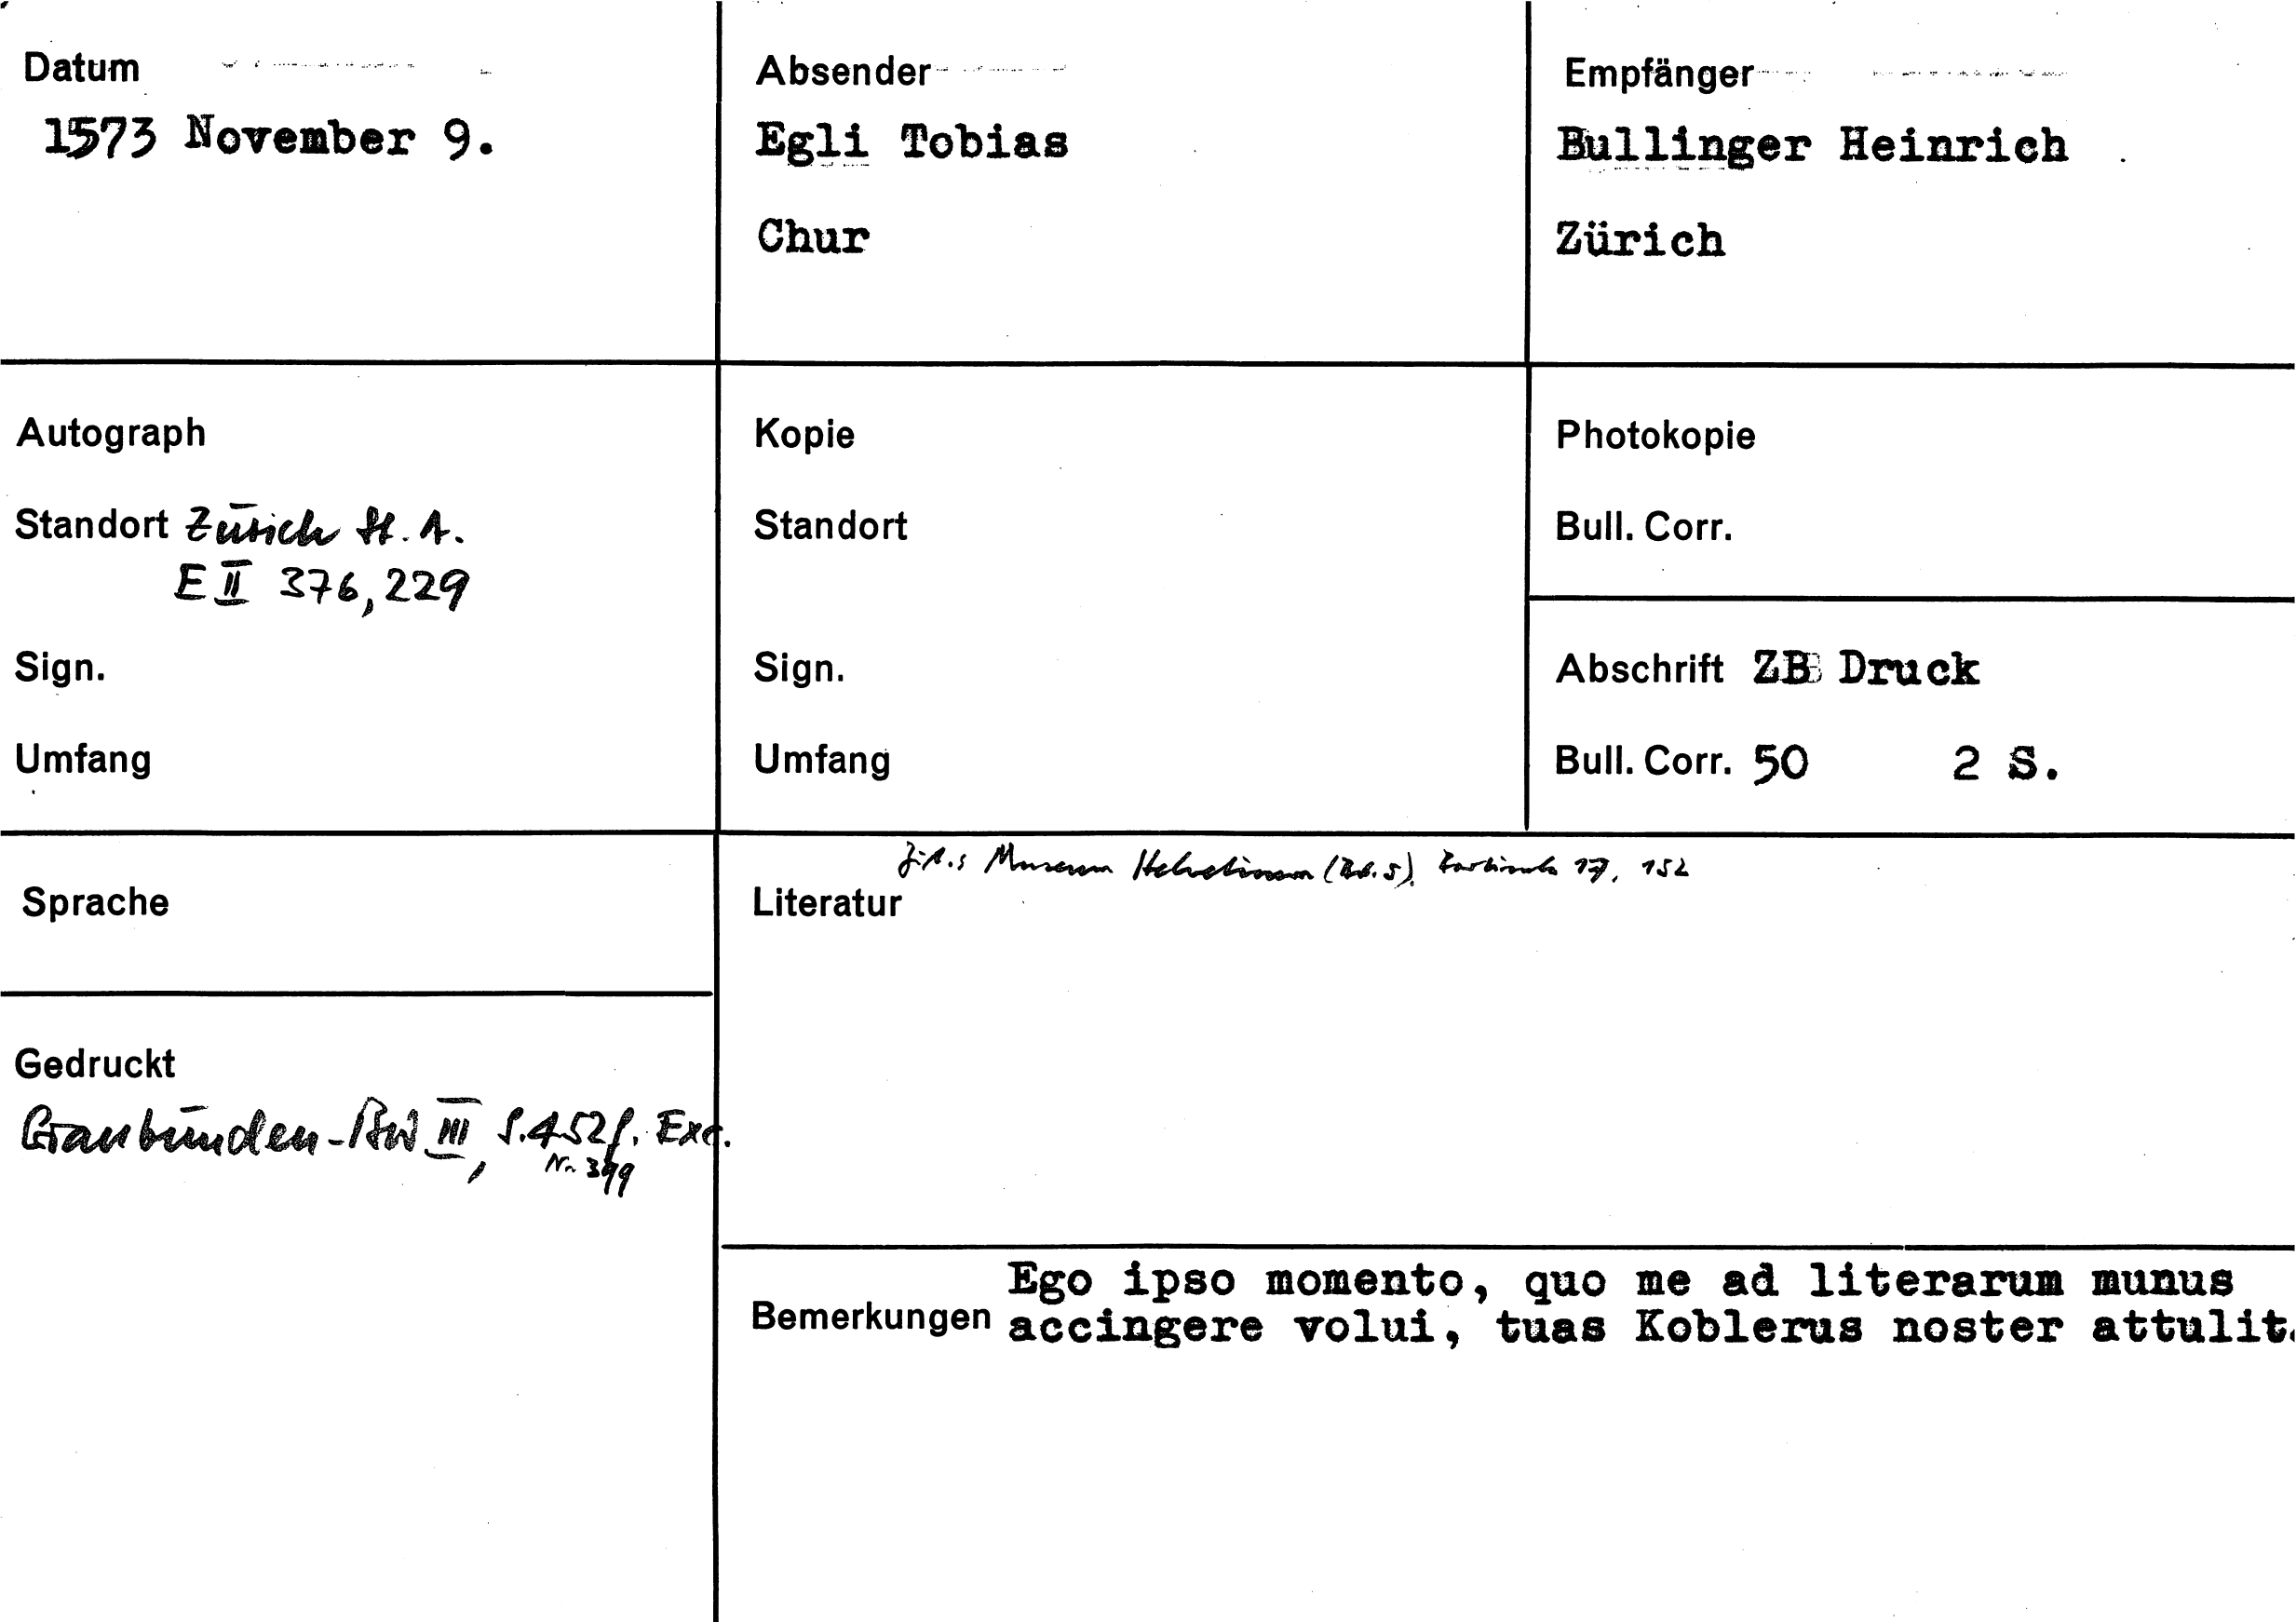 Datum
1573 November 9.
Absender
Egli Tobias
Chur
Empfänger
Bullinger Heinrich
Zürich
Autograph
Standort Zürich St. A.
E II 376, 229
Sign.
Umfang
Kopie
Standort
Sign.
Umfang
Photokopie
Bull. Corr.
Abschrift ZB Druck
Bull. Corr. 50 2 S.
Sprache
Gedruckt
Graubünden-BW III, S. 452f. Exc.
Nr. 399
Museum Helveticum (Bd. 5). 17, 152
Literatur
Bemerkungen
Ego ipso momento, quo me ad literarum munus
accingere volui, tuas Koblerus noster attulit.